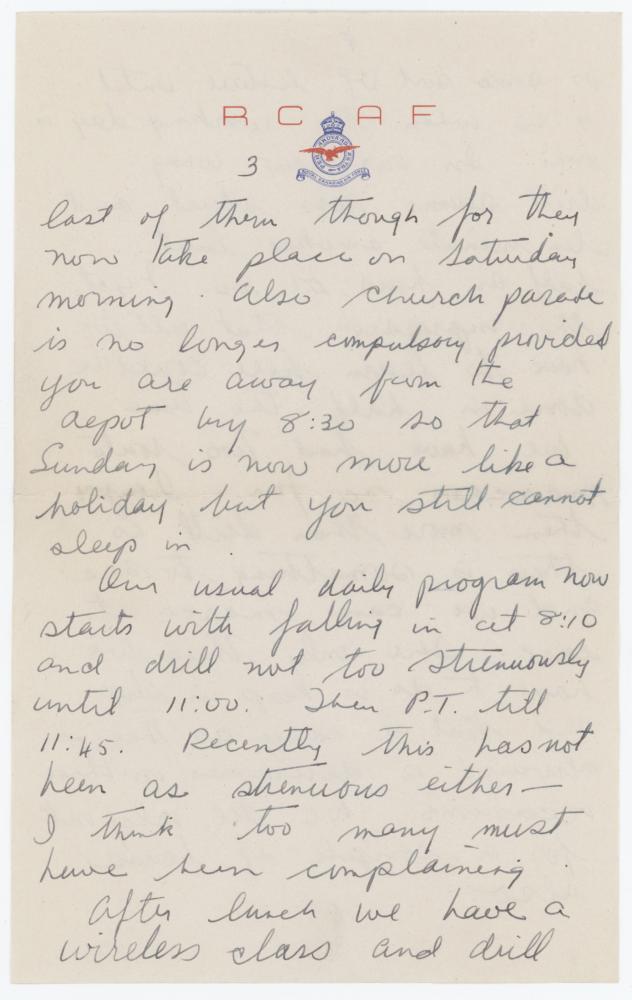 R C A F
PER ARDUA AD ASTRA
ROYAL CANADIAN AIR FORCE
3
last of them though for they
now take place on Saturday
morning. Also church parade
is no longer compulsory provided
you are away from the
depot by 8:30 so that
Sunday is now more like a
holiday but you still cannot
sleep in.
Our usual daily program now
starts with falling in at 8:10
and drill not too strenuously
until 11:00. Then P.T. till
11:45. Recently this has not
been as strenuous either—
I think too many must
have been complaining.
After lunch we have a
wireless class and drill